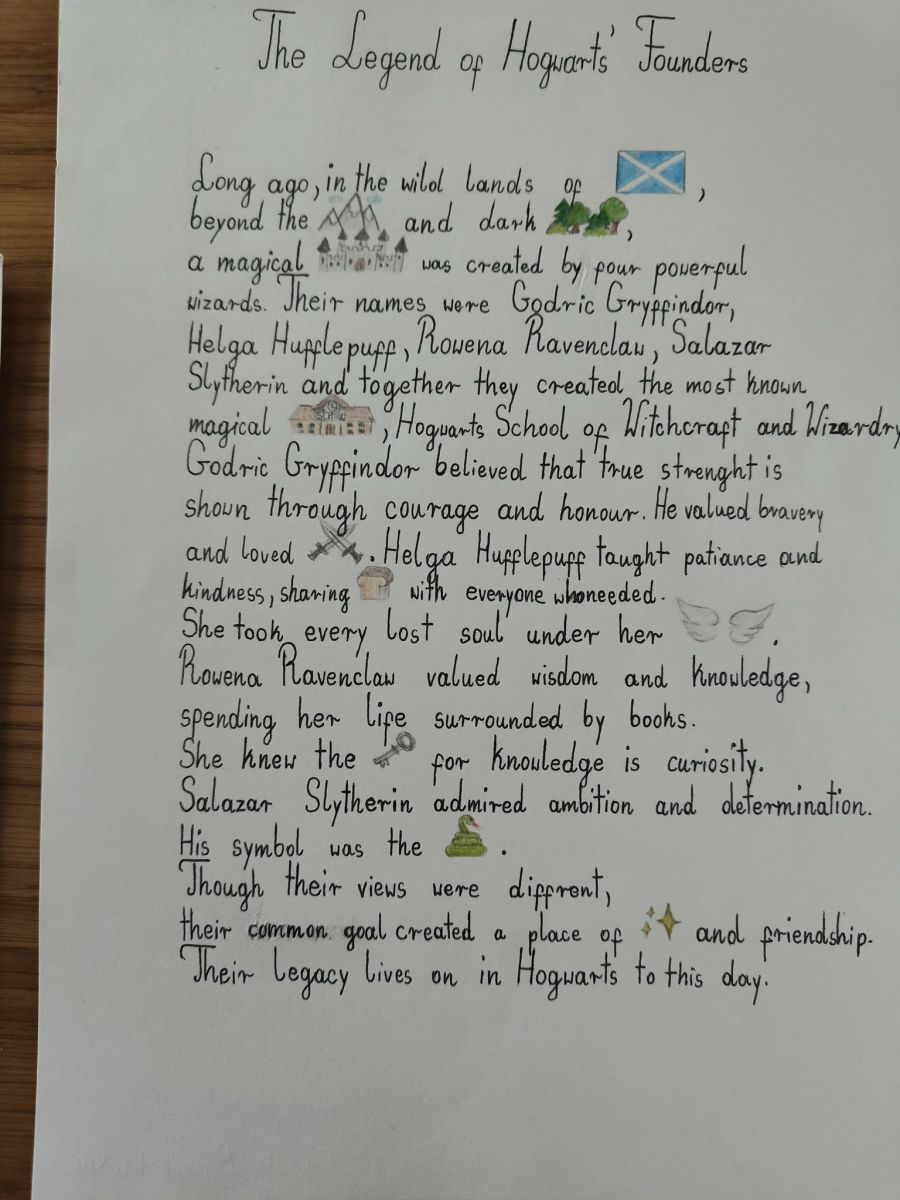 The Legend of Hogwarts' Founders
Long ago, in the wild lands of ,
beyond the and dark ,
a magical was created by four powerful
wizards. Their names were Godric Gryffindor,
Helga Hufflepuff, Rowena Ravenclaw, Salazar
Slytherin and together they created the most known
magical , Hogwarts School of Witchcraft and Wizardry
Godric Gryffindor believed that true strenght is
shown through courage and honour. He valued bravery
and loved . Helga Hufflepuff taught patiance and
kindness, sharing with everyone whoneeded.
She took every lost soul under her .
Rowena Ravenclaw valued wisdom and knowledge,
spending her life surrounded by books.
She knew the for knowledge is curiosity.
Salazar Slytherin admired ambition and determination.
His symbol was the .
Though their views were diffrent,
their common goal created a place of and friendship.
Their legacy lives on in Hogwarts to this day.